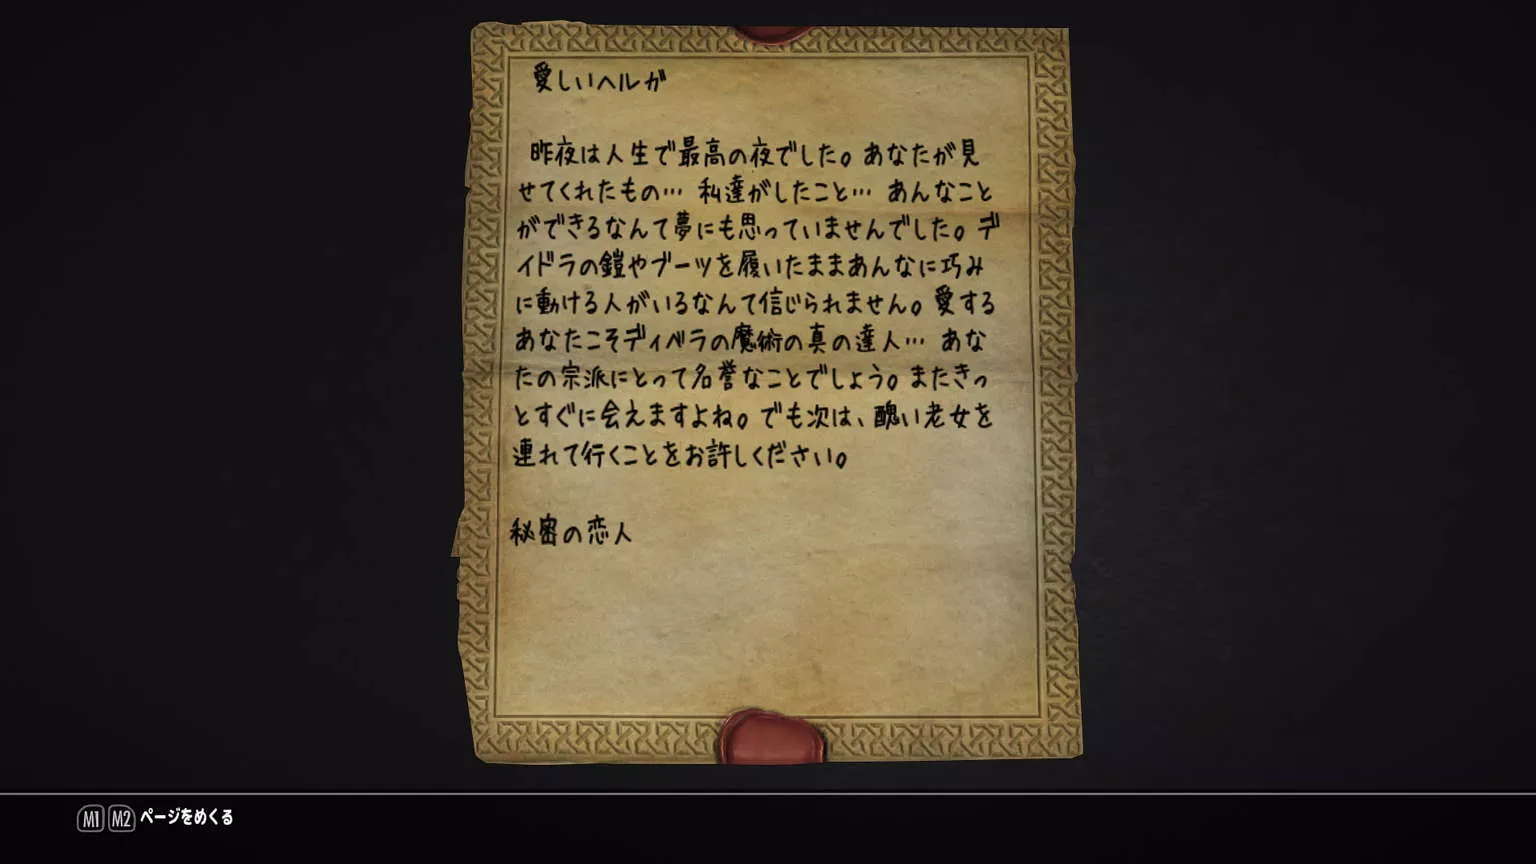 愛しいヘルガ
昨夜は人生で最高の夜でした。あなたが見
せてくれたもの… 私達がしたこと… あんなこと
ができるなんて夢にも思っていませんでした。デ
イドラの鎧やブーツを履いたままあんなに巧み
に動ける人がいるなんて信じられません。愛する
あなたこそディベラの魔術の真の達人… あな
たの宗派にとって名誉なことでしょう。またきっ
とすぐに会えますよね。でも次は、醜い老女を
連れて行くことをお許しください。
秘密の恋人
M1 M2 ページをめくる